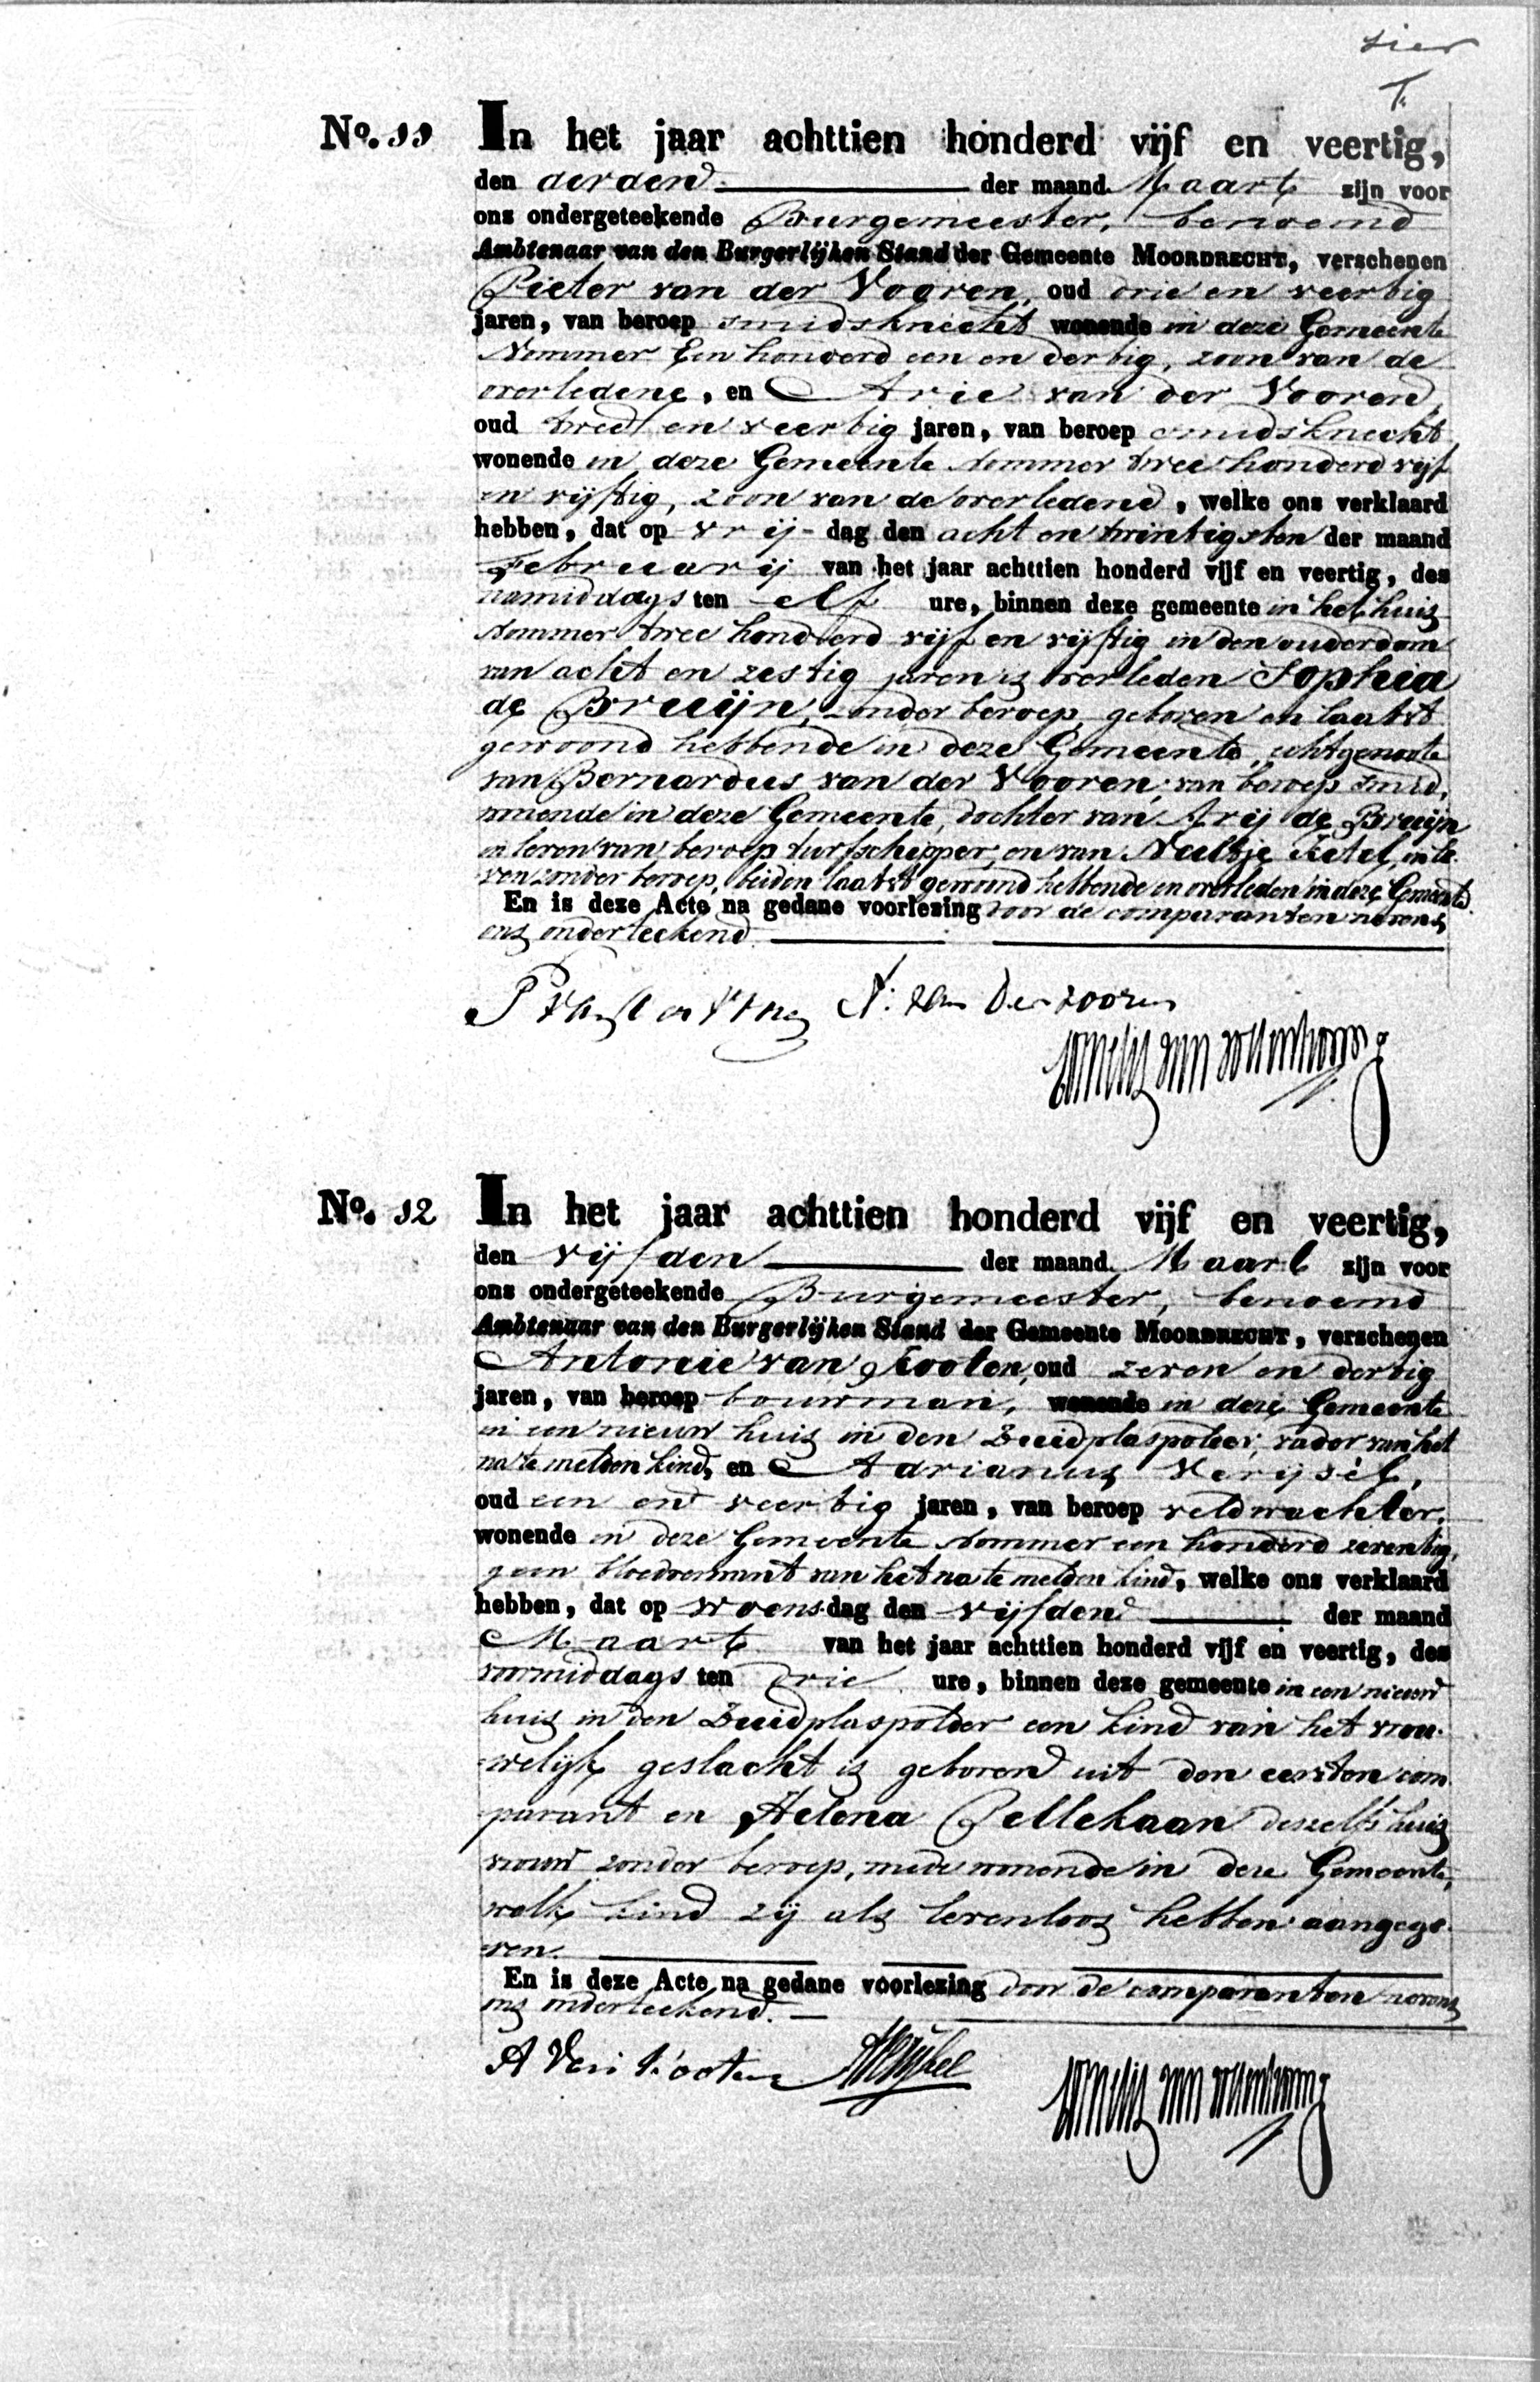 vier
No. 11 In het jaar achttien honderd vijf en veertig,
den derden der maand Maart zijn voor
ons ondergeteekende Burgemeester, benoemd
Ambtenaar van den Burgerlijken Stand der Gemeente MOORDRECHT, verschenen
Pieter van der Vooren, oud drie en veertig
jaren, van beroep smidsknecht wonende in deze Gemeente
Nommer Een honderd een en dertig, zoon van de
overledene, en Arie van der Vooren,
oud twee en veertig jaren, van beroep smidsknecht,
wonende in deze Gemeente Nommer twee honderd vijf
en vijftig, zoon van de overledene, welke ons verklaard
hebben, dat op vrij-dag den acht en twintigsten der maand
Februarij van het jaar achttien honderd vijf en veertig, des
namiddags ten elf ure, binnen deze gemeente in het huis
Nommer twee honderd vijf en vijftig in den ouderdom
van acht en zestig jaren is overleden Sophia
de Bruijn, zonder beroep, geboren en laatst
gewoond hebbende in deze Gemeente, echtgenoote
van Bernardus van der Vooren, van beroep smid,
wonende in deze Gemeente, dochter van Arij de Bruijn
in leven van beroep turfschipper, en van Neeltje Ketel, in le-
ven zonder beroep, beiden laatst gewoond hebbende en overleden in deze Gemeente.
En is deze Acte na gedane voorlezing door de comparanten nevens
ons onderteekend.
A: van der vooren
No. 12 In het jaar achttien honderd vijf en veertig,
den vijfden der maand Maart zijn voor
ons ondergeteekende Burgemeester, benoemd
Ambtenaar van den Burgerlijken Stand der Gemeente MOORDRECHT, verschenen
Antonie van Kooten, oud zeven en dertig
jaren, van beroep bouwman, wonende in deze Gemeente
in een nieuw huis in den Zuidplaspolder, vader van het
na te melden kind, en Adrianus Verijsel,
oud een en veertig jaren, van beroep veldwachter,
wonende in deze Gemeente Nommer een honderd zeventig,
geen bloedverwant van het na te melden kind, welke ons verklaard
hebben, dat op woensdag den vijfden der maand
Maart van het jaar achttien honderd vijf en veertig, des
voormiddags ten drie ure, binnen deze gemeente in een nieuw
huis in den Zuidplaspolder een kind van het vrou-
welijk geslacht is geboren uit den eersten com
parant en Helena Pellekaan deszelfs huis
vrouw zonder beroep, mede wonende in deze Gemeente,
welk kind zij als levenloos hebben aangege-
ven.
En is deze Acte na gedane voorlezing door de comparanten nevens
ons onderteekend.
A Van Kooten